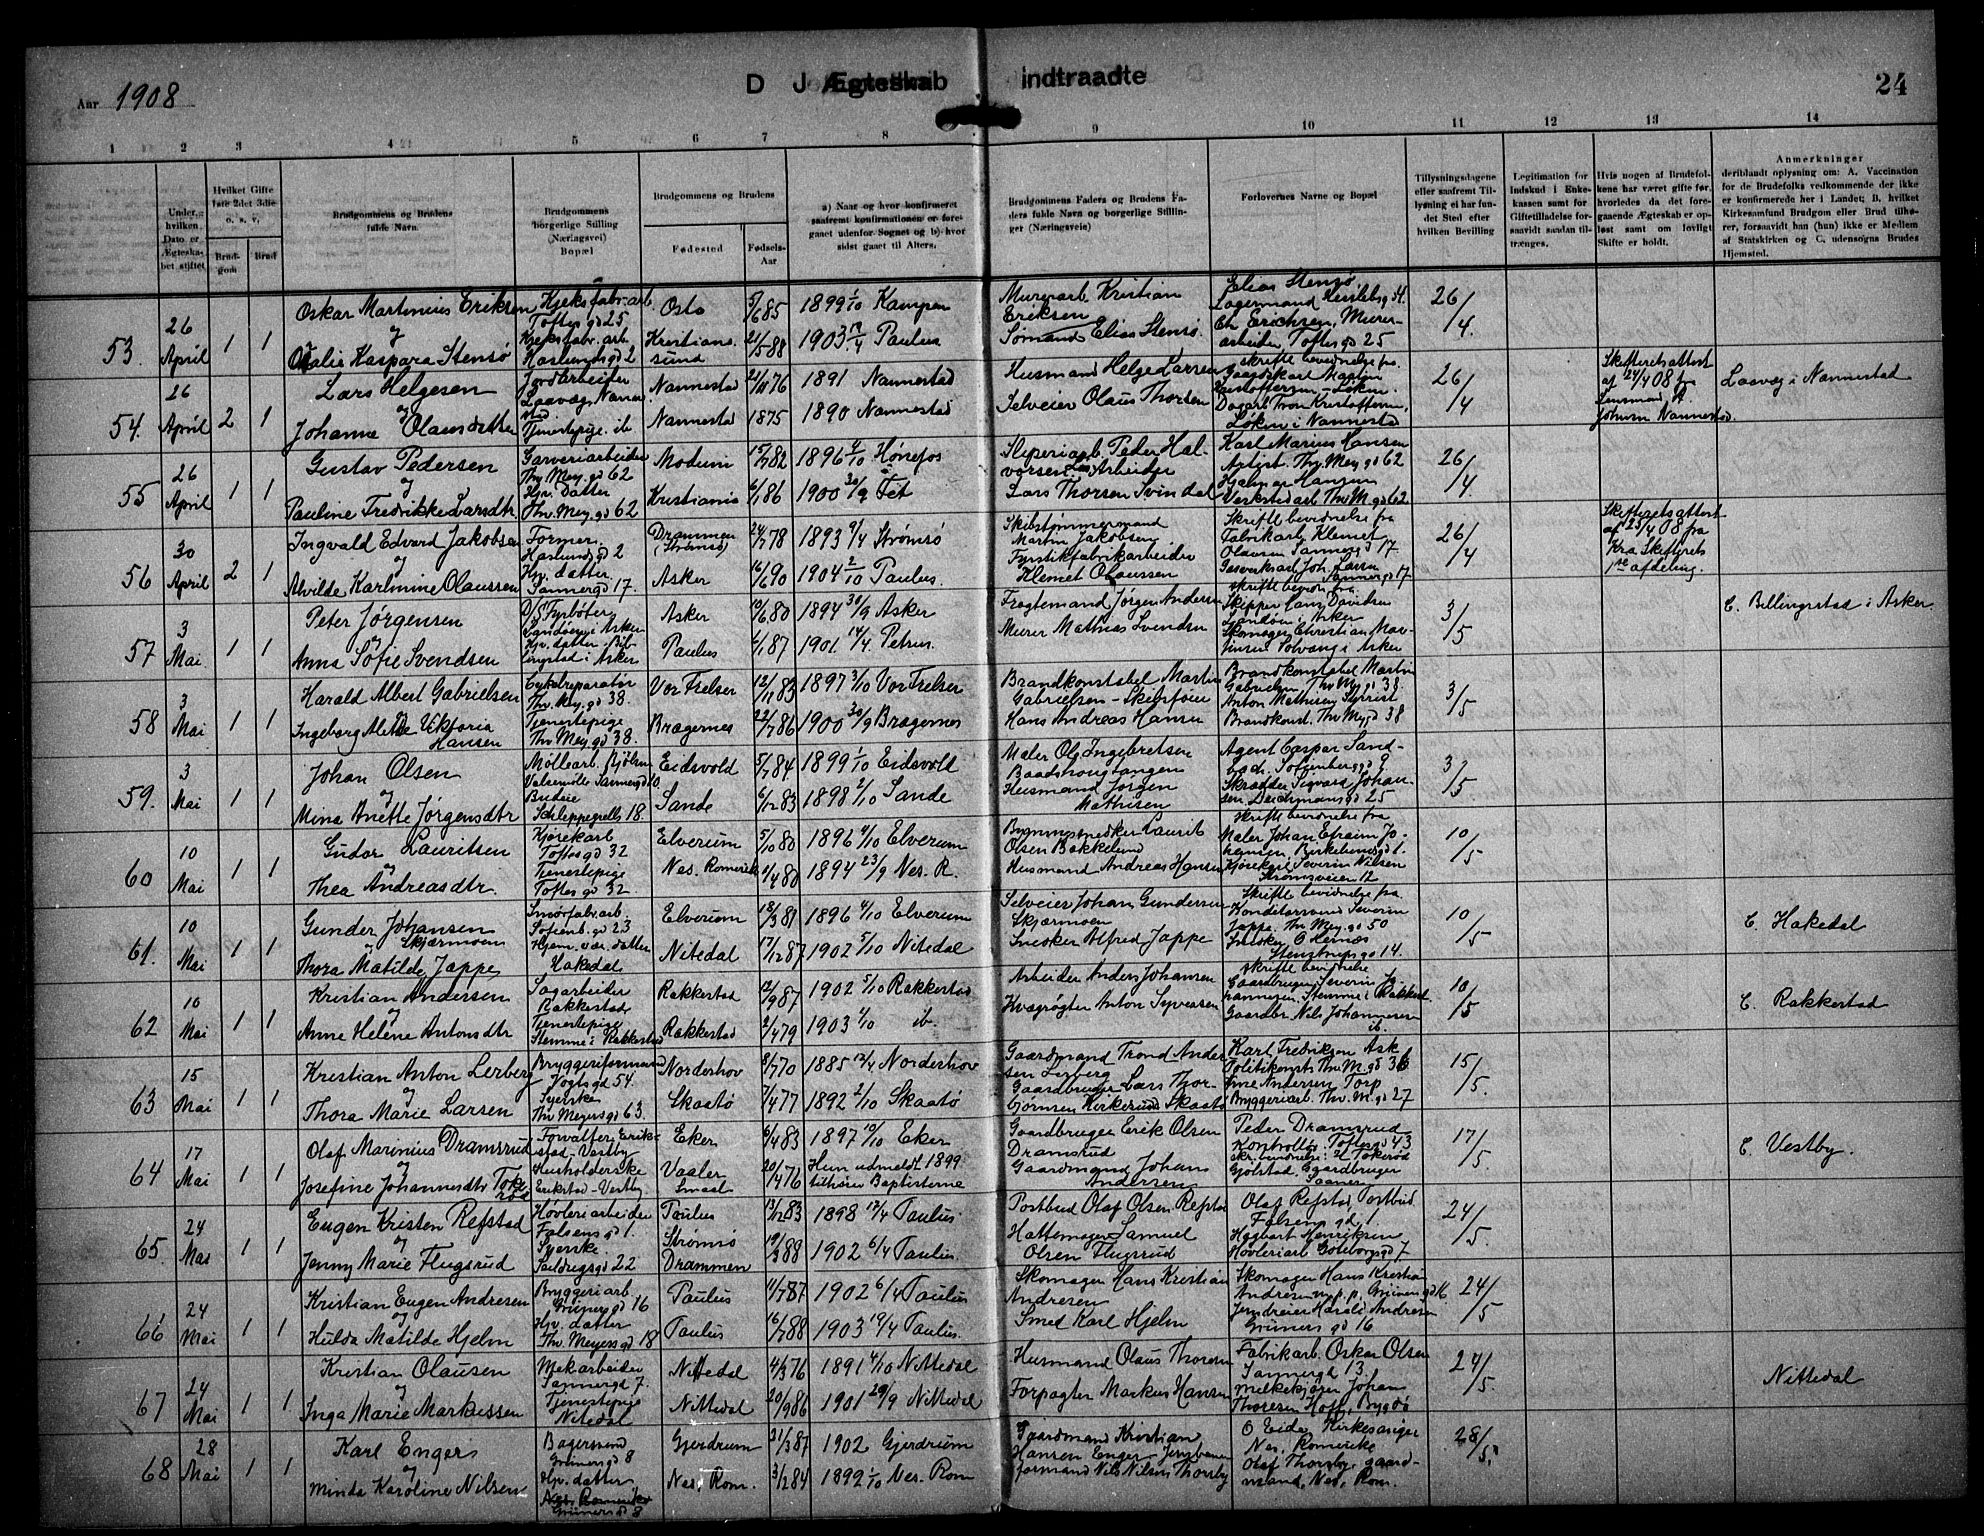 Aar 1908
D J Ægteskab indtraadte
24
1 2 3 4 5 6 7 8 9 10 11 12 13 14
Under hvilken Dato er Ægteskabet stiftet
Hvilket Gifte føre 2det 3die o. s. v.
Brudgom
Brud
Brudgommens og Brudens fulde Navn.
Brudgommens borgerlige Stilling (Næringsvei) Bopæl
Brudgommens og Brudens
Fødested
Fødsels-Aar
a) Naar og hvor konfirmeret saafremt konfirmationen er foregaaet udenfor Sognet og b) hvor sidst gaaet til Alters.
Brudgommens Faders og Brudens Faders fulde Navn og borgerlige Stillinger (Næringsveie)
Forlovernes Navne og Bopæl
Tillysningsdagene eller saafremt Tillysning ei har fundet Sted efter hvilken Bevilling
Legitimation for Indskud i Enkekassen samt for Giftetilladelse forsaavidt saadan tiltrænges.
Hvis nogen af Brudefolkene har været gifte før, hvorledes da det foregaaende Ægteskab er opløst samt om lovligt Skifte er holdt.
Anmerkninger
deriblandt oplysning om: A. Vaccination for de Brudefolks vedkommende der ikke er konfirmerede her i Landet; B. hvilket Kirkesamfund Brudgom eller Brud tilhører, forsaavidt han (hun) ikke er Medlem af Statskirken og C. udensogns Brudes Hjemsted.
53. 26 April 1 1
Oskar Martinius Eriksen
og
Kaspara Stensø
Kjeksfabr.arb
Toftesgd 25
Haslundsgd 2
Oslo 5/6 85 1899 1/10 Kampen
Kristianssund 21/5 88 1903 19/4 Paulus
Murerarb. Kristian
Eriksen
Sømand Elias Stensø
Elias Stensø
Ch. Erichsen, Murerarbeider, Toftesgd 25
26/4
54. 26 April 2 1
Lars Helgesen
og
Johanne Olausdatter
Jordarbeider
Tjenestepige ib
Nannestad 21/11 76 1891 Nannestad
Nannestad 1875 1890 Nannestad
Husmand Helge Larsen
Selveier Olaus Thorsen
skriftl. bevidnelse fra
Løken i Nannestad
26/4
Skifteretsattest
af 24/4 08 fra
Lensmand
Johnsen Nannestad.
Laavæg i Nannestad
55 26 April 1 1
Gustav Pedersen
og
Pauline Fredrikke Larsdtr.
Garveriarbeider
Thv. Mey. gd 62
Hjv. Datter
Thv. Mey. gd 62
Modum 15/7 82 1896 4/10 Hønefos
Kristiania 6/1 86 1900 30/9 Fet
Sliperiarb. Peder Halvorsen
Arbeider
Lars Thorsen Svindal
Karl Marius Hansen
Thv. Mey. gd 62
Hjalmar Hansen
Verkstedarb Thv M. gd 62
26/4
56 30 April 2 1
Ingvald Edvard Jakobsen
og
Alvilde Karlmine Olaussen
Former
Haslundsgd 2
Hjv. datter
Sannergd 17.
Drammen (Strømsø) 24/7 78 1893 9/4 Strømsø
Asker 16/6 90 1904 2/10 Paulus.
Skibstømmermand
Martin Jakobsen
Fyrstikfabrikarbeider
Klemet Olaussen
Skriftl. bevidnelse fra
Fabrikarb. Klemet
Olaussen Sannergd 17.
Gasverkarb. Joh. Larsen
Sannergd 17
26/4
Skifteretsattest
af 25/4 08 fra
Kra Skifterets
1ste afdeling.
57 3 Mai 1 1
Peter Jørgensen
og
Anna Sofie Svendsen
D/S Fyrbøter
Landøen i Asker
Hjv. datter. Billingstad i Asker
Asker 19/6 80 1894 30/9 Asker
Paulus 6/1 87 1901 14/4 Petrus.
Fragtemand Jørgen Andersen
Murer Mathias Svendsen
Skipper Hans Davidsen
Landøen i Asker
Skomager Christian Solvang i Asker
3/5
C. Billingstad i Asker
58 3 Mai 1 1
Harald Albert Gabrielsen
Ingeborg Alette Viktoria
Hansen
Cykelreparatør
Thv. Mey. gd 38.
Tjenestepige
Thv Mey. gd 38.
Vor Frelser 12/11 83 1897 3/10 Vor Frelser
Bragernes 22/7 86 1900 30/9 Bragernes
Brandkonstabel Martin
Gabrielsen
Hans Andreas Hansen
Brandkonstabel Martin
Gabrielsen, Thv M. gd 38.
Anton Mathisen Syrrist
Brandkonst. Thv Mey gd 38
3/5
59. 3 Mai 1 1
Johan Olsen
og
Mina Anette Jørgensdtr
Møllearb. Bjølsen
Valsemølle Sannergd 10
Budeie
Schleppegrells 18.
Eidsvold 5/7 84 1899 1/10 Eidsvold
Sande 6/12 83 1898 2/10 Sande
Maler Ole Ingebretsen
Baadshougtangen
Husmand Jørgen
Mathisen
Agent Caspar Sandbæch. Sofienberggd 9
Skrædder Sigvard Johansen. Deichmansgd 25
3/5
60 10 Mai 1 1
Gudor Lauritsen
og
Thea Andreasdtr.
Kjørekarl
Toftesgd 32
Tjenestepige
Toftes gd 32
Elverum 5/10 80 1896 4/10 Elverum
Nes. Romerike 1/4 80 1894 23/9 Nes. R.
Bygningssnedker Laurits
Olsen Bakkelund
Husmand Andreas Hansen
Skriftl bevidnelse fra
Maler Johan Efraim Johansen, Birkelundsgd 1.
Kjørekarl Severin Nilsen
Strømsveien 12
10/5
61. 10 Mai 1 1
Gunder Johansen
Skjærmoen
Thora Matilde Jappe
Smørfabr. arb.
Sofienb. gd 23
Hjem. vær. datter
Hakedal
Elverum 18/3 81 1896 4/10 Elverum
Nitedal 17/12 87 1902 5/10 Nitedal
Selveier Johan Gundersen
Skjærmoen
Snedker Alfred Jappe
Skriftl bevidnelse fra
Konditorsvend Severin
Jappe, Thv Mey. gd 50
Stenstrupsgd 14.
10/5
C. Hakedal
62 10 Mai 1 1
Kristian Andersen
og
Anne Helene Antonsdtr
Sagarbeider
Rakkestad
Tjenestepige
Stemme i Rakkestad
Rakkestad 12/9 87 1902 5/10 Rakkestad
Rakkestad 2/4 79 1903 4/10 ib.
Arbeider Anders Johansen
Kvægrøgter Anton Syversen
skriftl bevidnelse
Gaardbruger Severin Johannesen, Stemme i Rakkest.
Gaardbr. Nils Johannesen
ib.
10/5
C. Rakkestad
63 15 Mai 1 1
Kristian Anton Lerberg
og
Thora Marie Larsen
Bryggeriformand
Vogtsgd 54.
Syerske
Thv Meyersgd 63.
Norderhov 8/7 70 1885 12/4 Norderhov
Skaatø 7/4 77 1892 2/10 Skaatø
Gaardmand Trond Andersen Lerberg
Gaardbruger Lars Thorbjørnsen Kirkerud Skaatø
Karl Fredriksen Ask
Politikonst. Thv M. gd 36
Arne Andersen Torp
Bryggeriarb. Thv. M. gd 27
15/5
64 17 Mai 1 1
Olaf Marinius Dramsrud
og
Josefine Johannesdtr Tokerød
Forvalter, Erikstad-Vestby
Husholderske
Erikstad-Vestby.
Eker 6/4 83 1897 10/10 Eker
Vaaler Smaal. 20/4 76 Hun udmeldt 1899
tilhører Baptisterne
Gaardbruger Erik Olsen
Dramsrud
Gaardmand Johans
Andersen
Peder Dramsrud
Kontrollør. Toftesgd 43
Gjølstad, Gaardbruger
Saaner
17/5
C. Vestby.
65. 24 Mai 1 1
Eugen Kristen Refstad
og
Jenny Marie Flugsrud
Høvleriarbeider
Falsensgd 1.
Syerske.
Seildugsgd 22
Paulus 13/12 83 1898 17/4 Paulus
Strømsø Drammen 19/3 88 1902 6/4 Paulus.
Postbud Olaf Olsen Refstad
Hattemager Samuel
Olsen Flugsrud
Olaf Refstad, Postbud
Falsensgd 1
Hagbart Henriksen
Høvleriarb. Göteborggd 7
24/5
66 24 Mai 1 1
Kristian Eugen Andresen
og
Hulda Matilde Hjelm
Bryggeriarb
Grünersgd 16
Hjv. datter
Thv. Meyersgd 18
Paulus 11/7 87 1902 6/4 Paulus
Paulus 16/7 88 1903 19/4 Paulus.
Skomager Hans Kristian
Andresen
Smed Karl Hjelm
Skomager Hans Kristian
Andresen, Grünersgd 16
Jerndreier Harald Andresen
Grüners gd 16
24/5
67 24 Mai 1 1
Kristian Olausen
og
Inga Marie Markussen
Mekarbeider
Sannergd 7.
Tjenestepige
Nitedal
Nittedal 4/3 76 1891 4/10 Nittedal
Nittedal 20/9 86 1901 29/9 Nittedal
Husmand Olaus Thoresen
Forpagter Markus Hansen
Fabrikarb. Oskar Olsen
Sannergd 13.
Melkekjører Johan
Thoresen Hoff, Bygdø
24/5
Nittedal
68 28 Mai 1 1
Karl Enger
og
Minda Karoline Nilsen
Bagersvend
Grünersgd 8
Hjv. datter
Nes. Romerike
Grünersgd 8
Gjerdrum 21/3 87 1902 Gjerdrum
Nes, Rom. 3/12 84 1899 1/10 Nes. Rom
Gaardmand Kristian
Hansen Enger Jernbaneformand Nils Nilsen Thorsby
O Eide, Kirkesanger
Nes. Romerike
Olaf Thorsby, gaardmand, Nes, Rom.
28/5